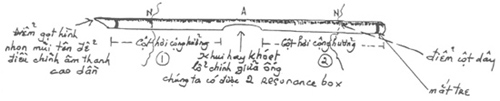 N
A
N
điểm gọt hình
nhọn mũi tên để
điều chỉnh âm thanh
cao dần
Cột hơi cộng hưởng
①
khui hay khoét
lỗ chính giữa ống
chúng ta có được 2 Resonance box
Cột hơi cộng hưởng
②
điểm cột dây
mắt TRE